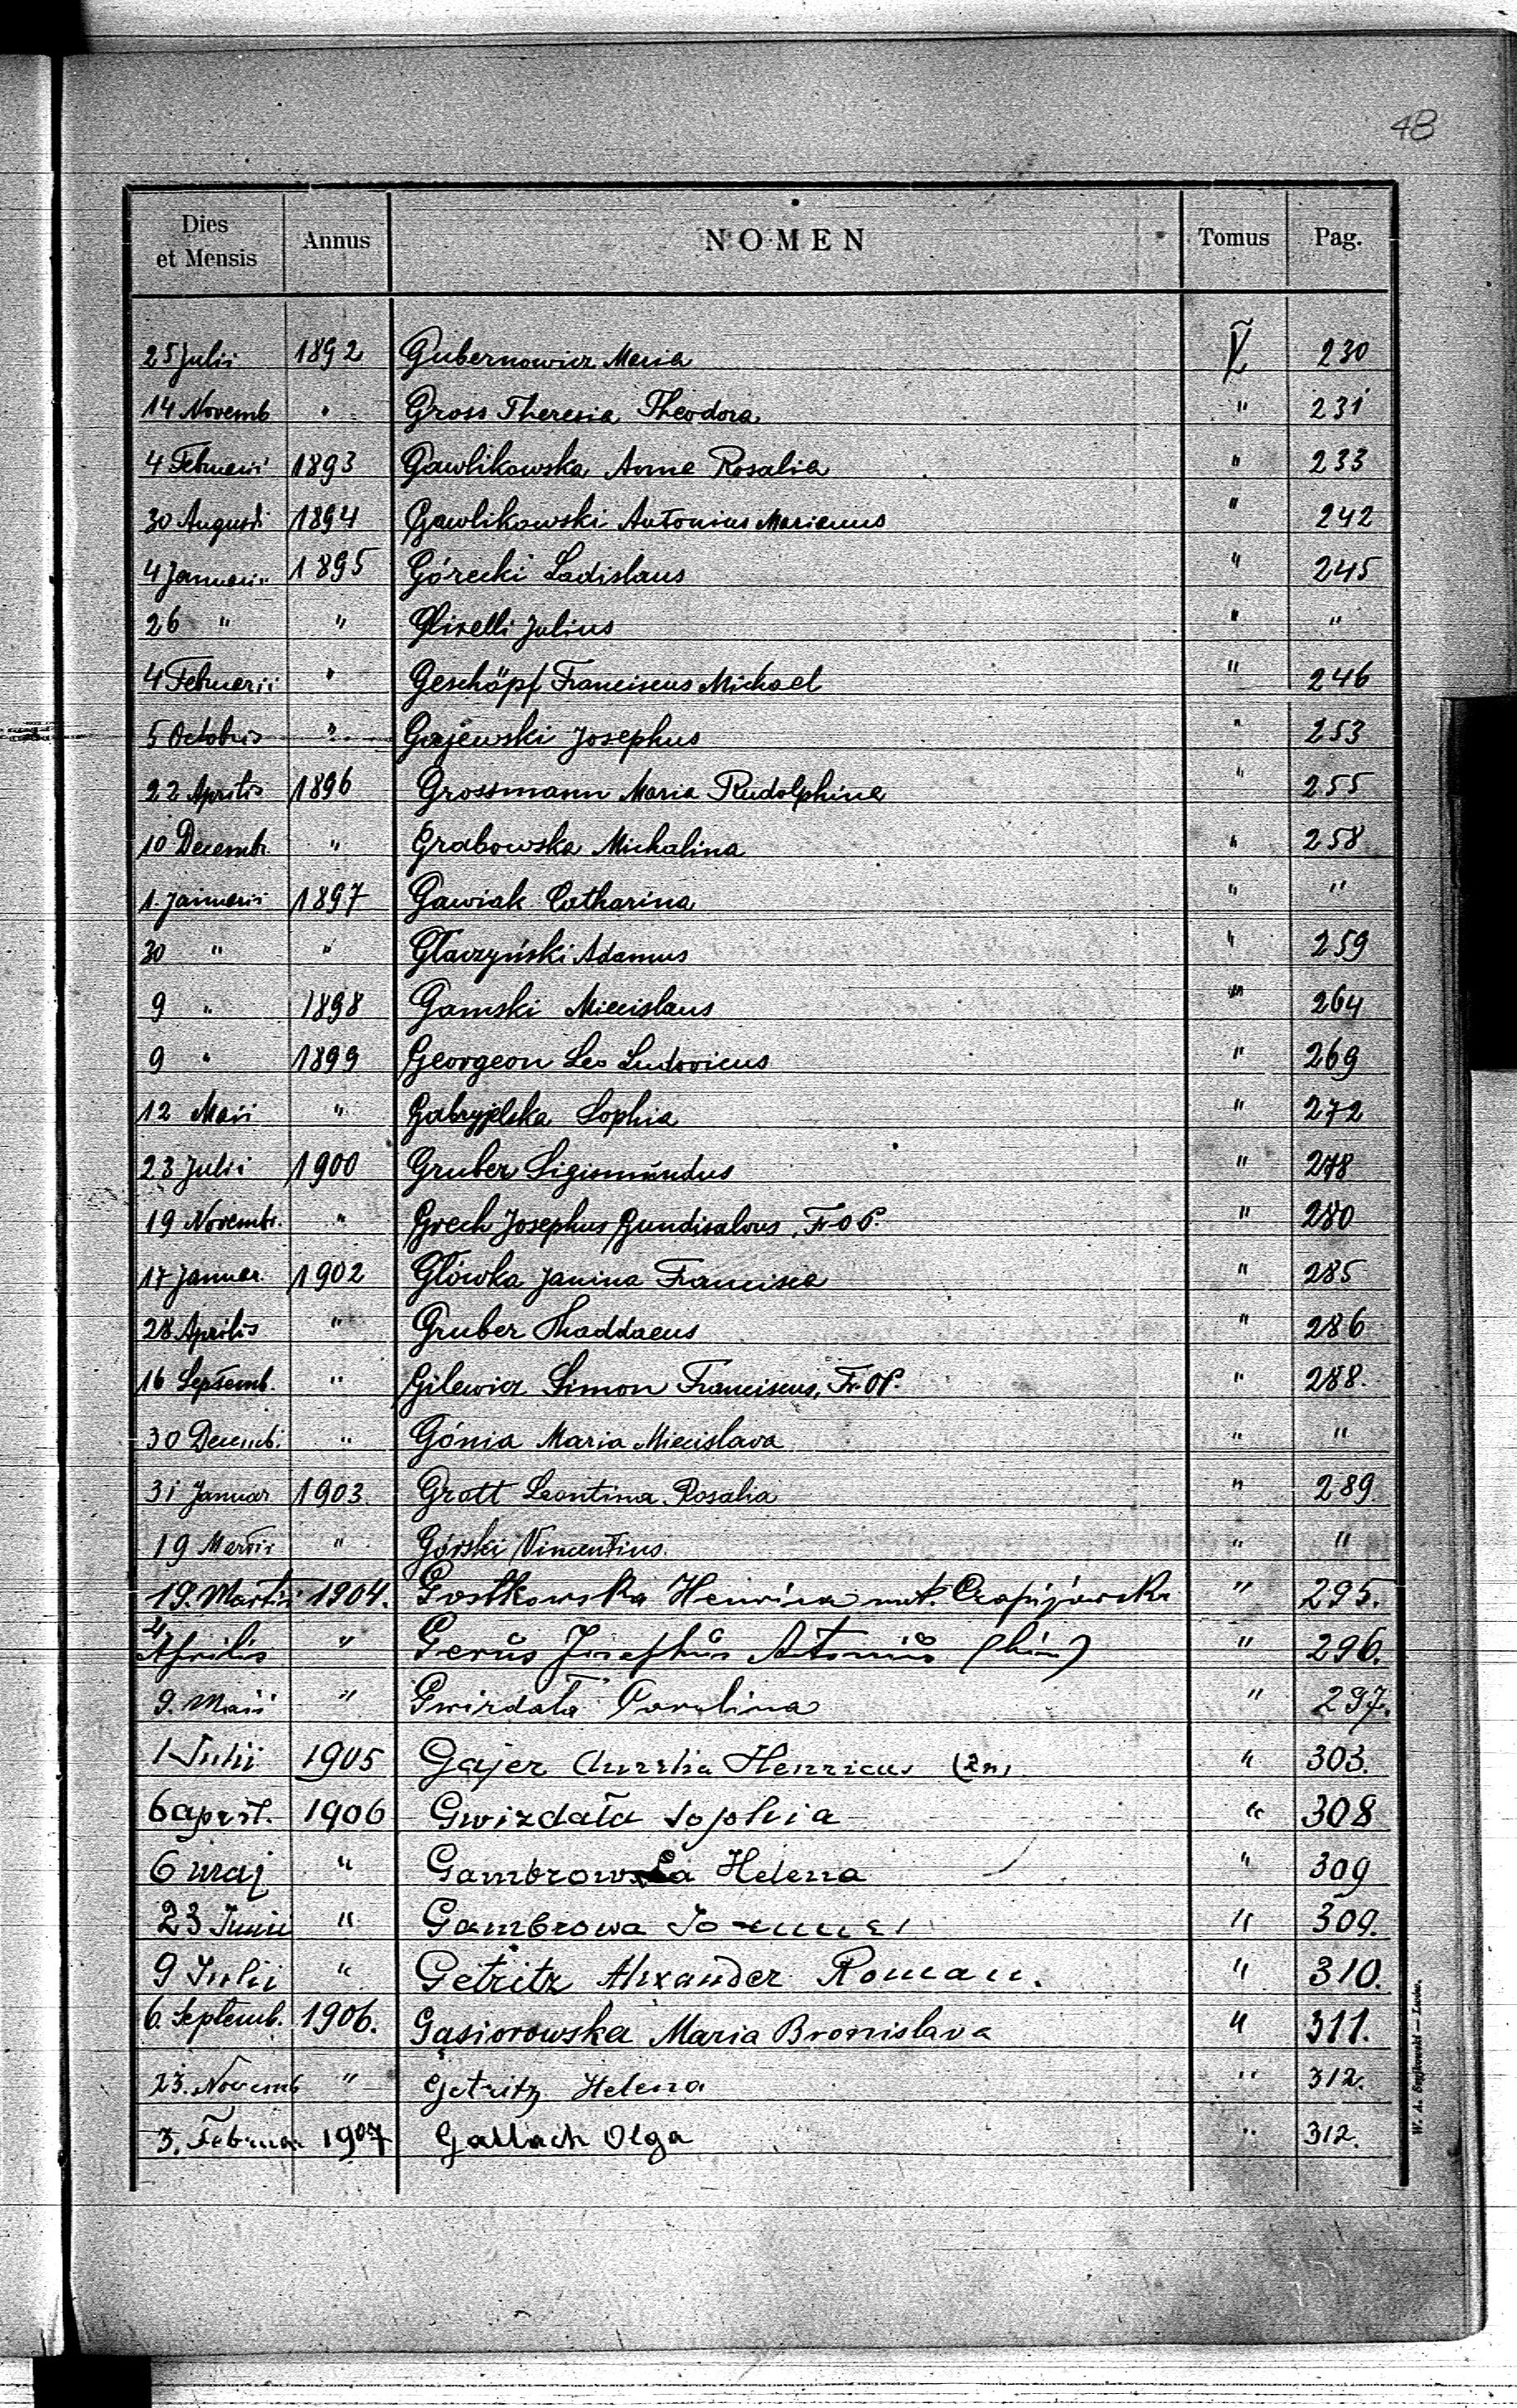 48
Dies et Mensis Annus NOMEN Tomus Pag.
25 Julii 1892 Gubernowicz Maria V 230
14 Novemb " Gross Theresia Theodora " 231
4 Februarii 1893 Gawlikowska Anna Rosalia " 233
30 Augusti 1894 Gawlikowski Antonius Marianus " 242
4 Januarii 1895 Górecki Ladislaus " 245
26 " " Glixelli Julius " "
4 Februarii " Geschöpf Franciscus Michael " 246
5 Octobris " Gajewski Josephus " 253
22 Aprilis 1896 Grossmann Maria Rudolphina " 255
10 Decembr. " Grabowska Michalina " 258
1. Januarii 1897 Gawiak Catharina " "
30 " " Głaczyński Adamus " 259
9 " 1898 Gamski Miecislaus " 264
9 " 1899 Georgeon Leo Ludovicus " 269
12 Maii " Gabryjelska Sophia " 272
23 Julii 1900 Gruber Sigismundus " 278
19 Novembr. " Grech Josephus Gundisalvus, Fr. O P. " 280
17 Januar. 1902 Główka Janina Francisca " 285
28 Aprilis " Gruber Thaddaeus " 286
16 Septemb. " Gilewicz Simon Franciscus, Fr. OP. " 288.
30 Decemb. " Gónia Maria Miecislava " "
31 Januar 1903. Grott Leontina Rosalia " 289
19 Martii " Górski Vincentius " "
19. Martii 1904. Gostkowska Henrica " 295.
4 Aprilis " Gerus Josephus Antonius " 296.
9. Maii " Gwizdała Carolina " 297.
1 Julii 1905 Gajer Henricus (2n) " 303.
6 april. 1906 Gwizdała Sophia " 308
6 maj " Gambrowska Helena " 309
23 Junii " Gambrowa " 309.
9 Julii " Getritz Alexander Roman. " 310.
6. Septemb. 1906. Gąsiorowska Maria Bronislava " 311.
23. Novemb " Getritz Helena " 312.
3. Februar 1907 Gallach Olga " 312.